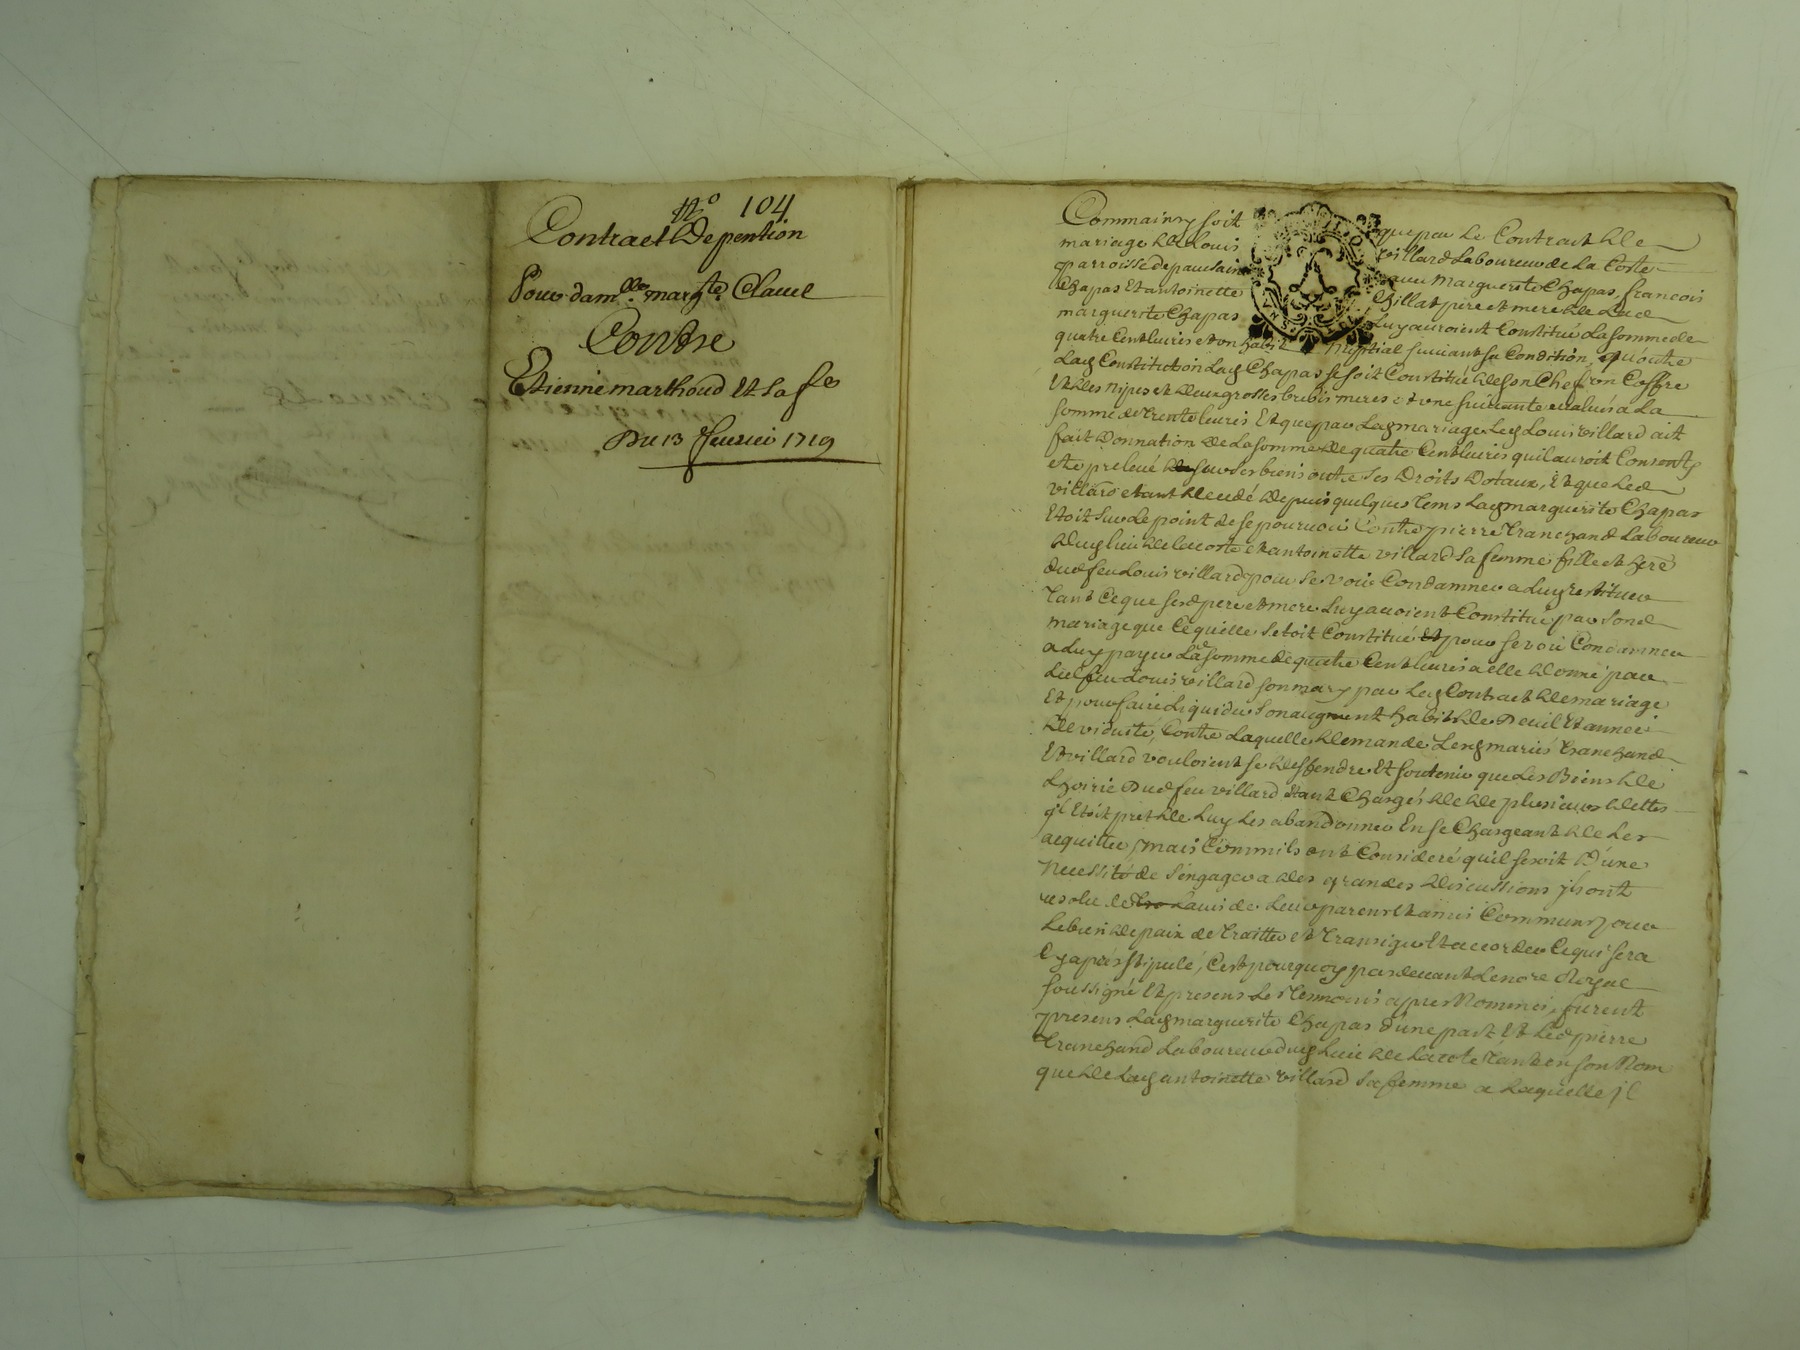 N° 104
Contract De pention
Pour dam.lle marg.te Clavel
Contre
Etienne marthoud Et sa fe
Du 13 fevrier 1719
Commainsy soit que par le Contract de
mariage de Louis Villard Laboureur de La Coste
parroisse de paulain avec Marguerite Chapas, francois
Chapas Et antoinette Chillat pere et mere de Lad
marguerite Chapas Luy auroient Constitué La somme de
quatre Cent livres et un habit Nuptial suivant sa Condition, qu'outre
Lad Constitution Lad Chapas se soit Constitué de son Chef un Coffre
Et des nipes et deux grosses brebis meres et une suivante evalués a La
somme de Trente livres Et que par Led mariage Led Louis Villard ait
fait Donnation de La somme de quatre Cent livres quil auroit Consenty
etre prelevé sur ses biens outre ses Droits Dotaux, Et que Led
Villard etant decedé depuis quelques Tems Lad marguerite Chapas
Etoit sur Le point de se pourvoir Contre pierre Tranchand Laboureur
dud lieu de lacoste et antoinette villard sa femme fille et here
dud feu Louis villard pour se voir Condamner a Luy restituer
Tant Ce que sesd pere et mere Luy avoient Constitué par sond
mariage que Ce quelle setoit Constitué pour se voir Condamner
a Luy payer Lad somme de quatre Cent livres a elle donné par
Led feu Louis villard son mary par Led Contract de mariage
Et pour faire Liquider son augment habit de Deuil Et année
de viduité, Contre Laquelle demande Lesd mariés Tranchand
Et villard vouloient se deffendre Et soutenir que Les Biens de
Lhoirie Dud feu villard Etant Chargés de de plusieurs dettes
jl Etoit pret de Luy Les abandonner En se Chargeant de Les
acquitter, mais Comm ils ont Consideré quil seroit D'une
Necessité de s'engager a des grandes discussions jls ont
resolu de Lavis de Leur parens Et amis Communs pour
Le bien de paix de Traitter et Transiger Et accorder Ce qui sera
Cy apres stipulé, C'est pourquoy pardevant Le nore Royal
soussigné Et presens Les Temoins apres Nommés, furent
presens Lad marguerite Chapas d'une part Et Led pierre
Tranchand Laboureur dud Lieu de Lacote Tant en son Nom
que de Lad antoinette villard sa femme a Laquelle jl